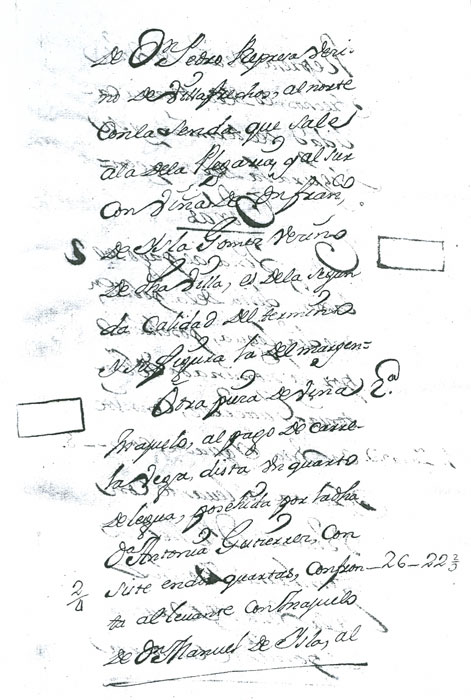 De Dn Pedro Represa Veci-
no De Villafrechos, al norte
Con la Senda que Sale
a la De la Reguera, y al Sur
Con Viña De Dn Fran,co
De Isla Gomez Vecino
De dha Villa, es De la Segun
da Calidad del termino
Su figura la Del margen=
Otra pieza de viña 2.a
Majuelo, al pago De Carre
la Vega, dista un quarto
De legua, posehida por la dha
Da Antonia Gutierrez, Con
Siete quartas, Confron - 26 - 22 2/3
2/4
ta al levante Con Majuelo
De Dn Manuel De Isla, al